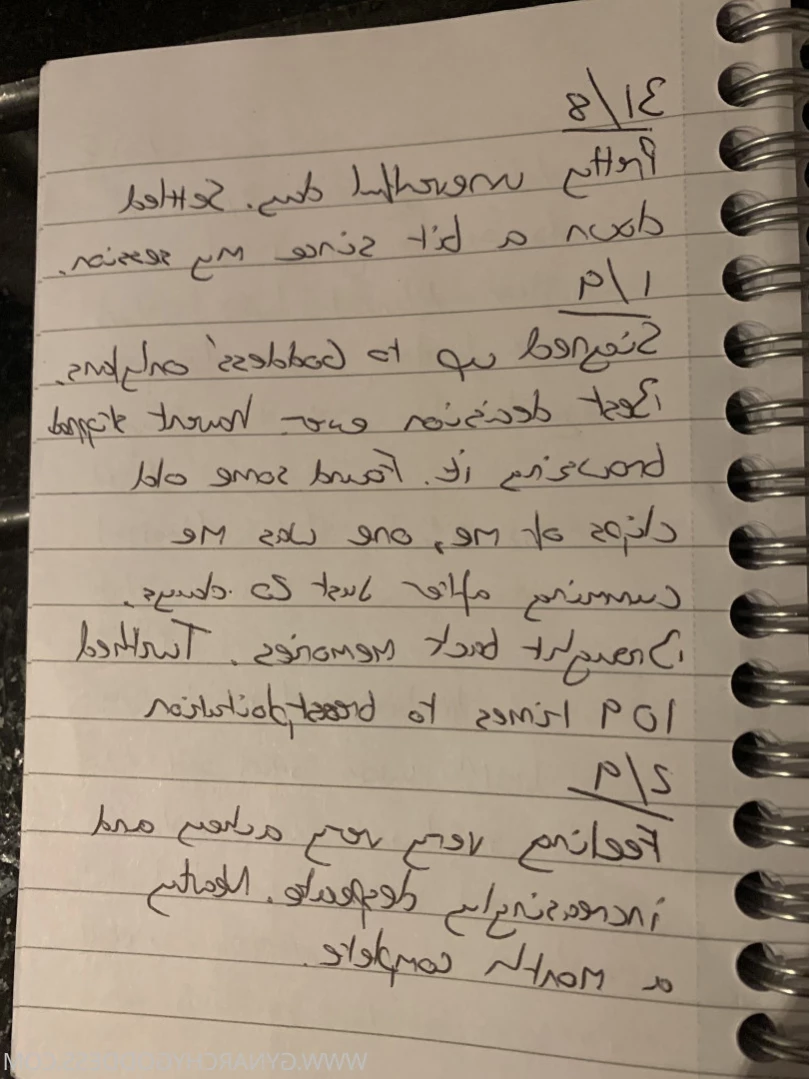 31/8
Pretty uneventful day. Settled
down a bit since my session.
1/9
Signed up to Goddess' onlyfans.
Best decision ever - havent stopped
browsing it. Found some old
clips of me, one was me
cumming after just 23 days.
Brought back memories. Twitched
109 times to breastploitation
2/9
Feeling very very achey and
increasingly desperate. Nearly
a month complete.